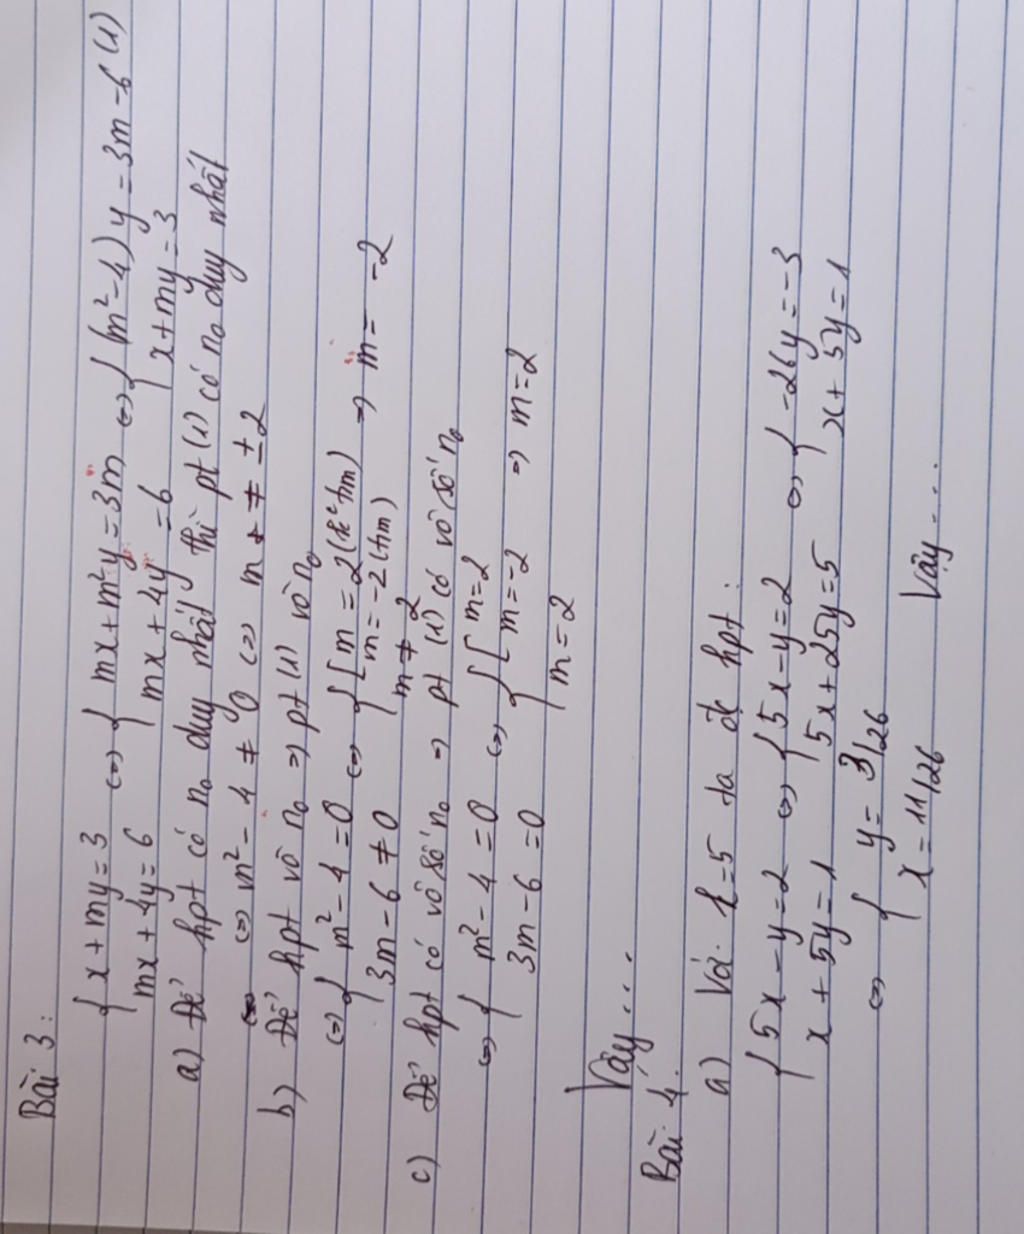 Bài 3:
{ x + my = 3 <=> { mx + m²y = 3m <=> { (m² - 4) y = 3m - 6 (1)
mx + 4y = 6 mx + 4y = 6 x + my = 3
a) Để hpt có n₀ duy nhất thì pt (1) có n₀ duy nhất
<=> m² - 4 ≠ 0 <=> m ≠ ±2
b) Để hpt vô n₀ => pt (1) vô n₀
<=> { m² - 4 = 0 <=> { [ m = 2 (k° t/m) => m = -2
3m - 6 ≠ 0 m = -2 (t/m)
m ≠ 2
c) Để hpt có vô số n₀ => pt (1) có vô số n₀
<=> { m² - 4 = 0 <=> { [ m = 2
3m - 6 = 0 m = -2 => m = 2
m = 2
Vậy...
Bài 4:
a) Với k = 5 ta đc hpt:
{ 5x - y = 2 <=> { 5x - y = 2 <=> { -26y = -3
x + 5y = 1 5x + 25y = 5 x + 5y = 1
<=> { y = 3/26
x = 11/26 Vậy...